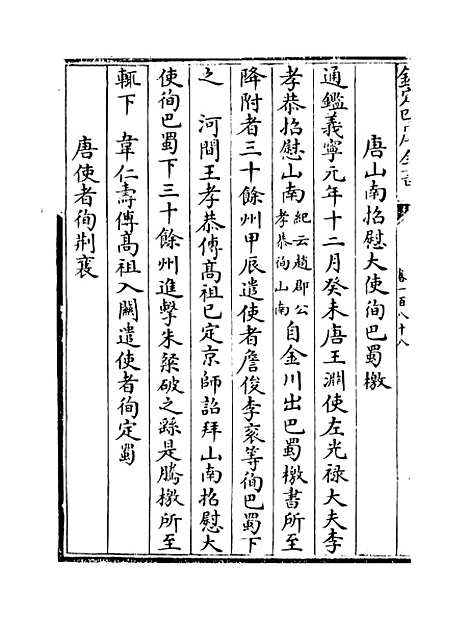 欽定四庫全書
卷一百八十八
唐山南招慰大使徇巴蜀檄
通鑑義寧元年十二月癸未唐王淵使左光禄大夫李
孝恭招慰山南紀云趙郡公孝恭徇山南自金川出巴蜀檄書所至
降附者三十餘州甲辰遣使者詹俊李衮等徇巴蜀下
之　河間王孝恭傳髙祖已定京師詔拜山南招慰大
使徇巴蜀下三十餘州進擊朱粲破之繇是騰檄所至
輒下　韋仁壽傳髙祖入闗遣使者徇定蜀
唐使者徇荆襄